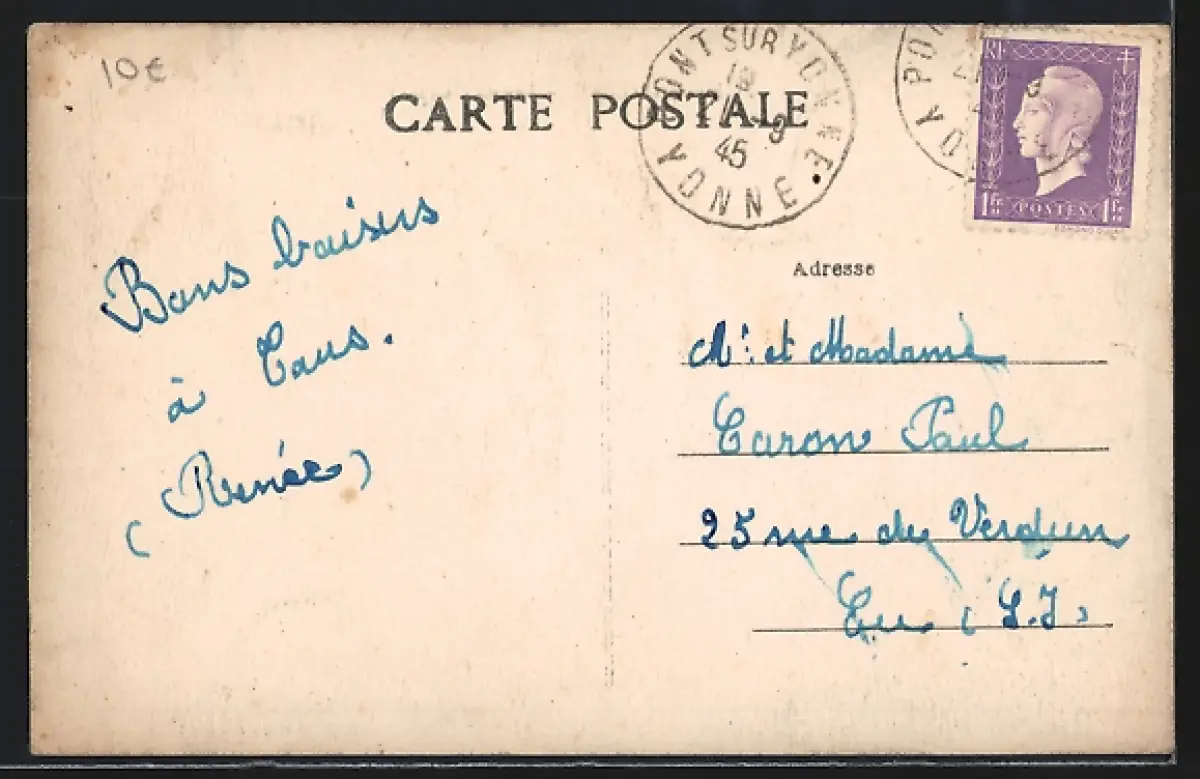 10€
CARTE POSTALE
PONT SUR YONNE
18
-9
45
YONNE
RF
1fr POSTES 1fr
Adresse
Bons baisers
à Tous.
(Renée)
Mr. et Madame
Caron Paul
25 rue de Verdun
Eu (S.I)